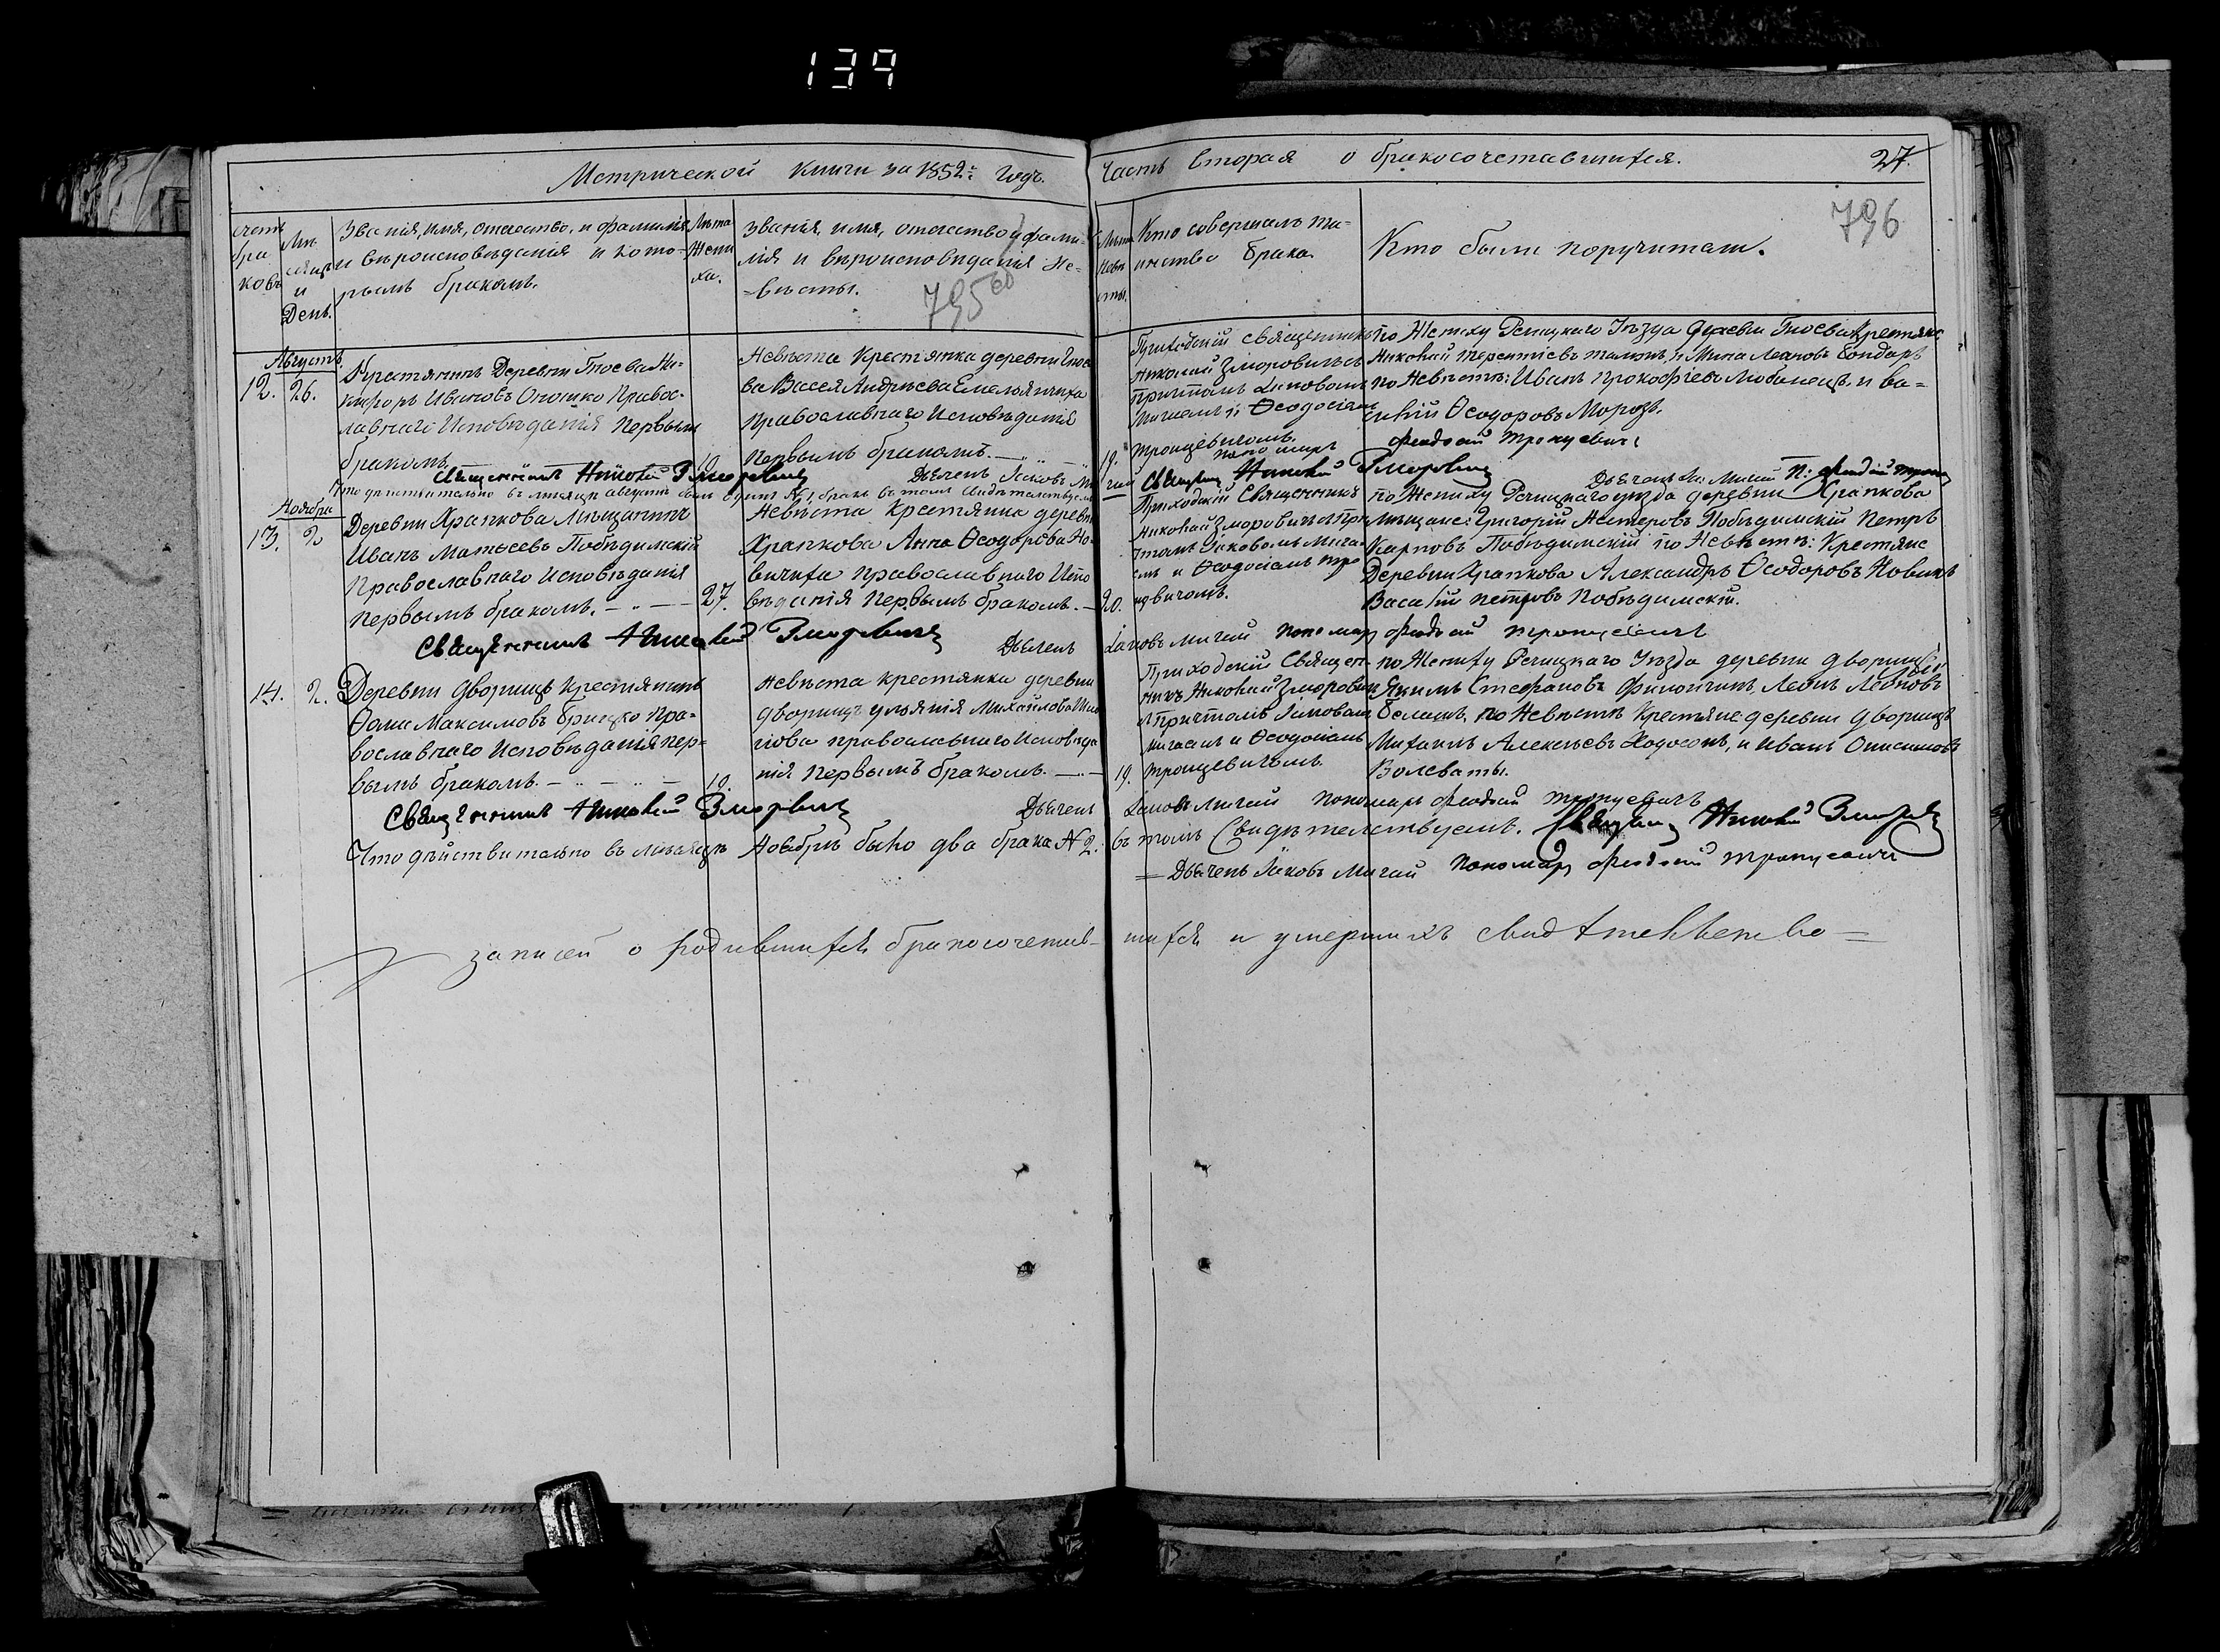 139
Метрической книги за 1852й годъ.
Часть вторая о бракосочетавшихся.
27.
796
795
счетъ браковъ
Мѣсяцъ и День.
Званія, имя, отечество, и фамилія
и вѣроисповѣданія и кото-
рымъ бракомъ.
Лѣта Жени ха.
Званія, имя, отечество, фами-
лія и вѣроисповѣданія Не-
=вѣсты.
Лѣта Невѣ сты.
Кто совершалъ та-
инство брака.
Кто были поручители.
Августъ
12. 26.
Крестянинъ Деревни Гноева Ни-
кифоръ Ивановъ Правос-
лавнаго Исповѣданія Первымъ
бракомъ.
19.
Невѣста Крестянка деревни Гное
ва Васса Андрѣева Емельянчиха
Православнаго Исповѣданія
Первымъ бракомъ.
19.
Приходскій Священникъ
Николай Зморовичъ съ
притчомъ Іаковомъ
Мигаемъ и Ѳеодосіемъ
Троицевичомъ.
по Жениху Рѣчицкаго Уѣзда Деревни Гноева Крестяне
Николай Терентіевъ и Мина Леоновъ Бондаръ
по Невѣстѣ: Иванъ Прокофіевъ Любанецъ, и Ва-
силій Ѳеодоровъ Морозъ.
Священникъ Николай Зморовичъ
Дьячекъ Іаковъ Мигай
Что дѣйствительно въ мѣсяцѣ Августѣ былъ одинъ №1, бракъ въ томъ Свидѣтельствуемъ
Священникъ Николай Зморовичъ
Ноября
13. 2
Деревни Храпкова Мѣщанинъ
Иванъ Матѳеевъ Побѣдимскій
Православнаго Исповѣданія
Первымъ бракомъ.
27.
Невѣста Крестянка деревни
Храпкова Анна Ѳеодорова Но
вичиха православнаго Испо
вѣданія Первымъ бракомъ.
20.
Приходскій Священникъ
Николай Зморовичъ съ При
томъ Іаковомъ Мига-
емъ и Ѳеодосіемъ Тро
ицевичомъ.
по Жениху Рѣчицкаго уѣзда деревни Храпкова
Мѣщане: Григорій Нестеровъ Побѣдимскій Петръ
Карповъ Побѣдимскій по Невѣстѣ: Крестяне
Деревни Храпкова Александръ Ѳеодоровъ Новикъ
Василій Петровъ Побѣдимскій.
Священникъ Николай Зморовичъ Дьячекъ Іаковъ Мигай Пономарь Феодосій Троицевичъ
14. 2.
Деревни Дворищъ Крестянинъ
Ѳома Максимовъ Брицко Пра-
вославнаго Исповѣданія пер-
вымъ бракомъ.
19.
Невѣста крестянка деревни
Дворищъ Ульянія Михайлова
православнаго Исповѣда
нія Первымъ бракомъ.
19.
Приходскій Священ-
никъ Николай Зморовичъ
съ Притчомъ Іаковомъ
Мигаемъ и Ѳеодосіемъ
Троицевичомъ.
по Жениху Рѣчицкаго Уѣзда деревни Дворищъ
Якимъ Стефановъ Леонъ Леоновъ
по Невѣстѣ Крестяне деревни Дворищъ
Михаилъ Алексѣевъ Ходосокъ, и Иванъ Онисимовъ
Волсваты.
Священникъ Николай Зморовичъ Дьячекъ Іаковъ Мигай Пономарь Феодосій Троицевичъ
Что дѣйствительно въ мѣсяцѣ Ноебрѣ было два брака №2. въ томъ Свидѣтелствуемъ. Священникъ Николай Зморовичъ
Дьячекъ Іаковъ Мигай Пономарь Феодосій Троицевичъ
записей о родившихся бракосочетав- шихся и умершихъ свидѣтельство